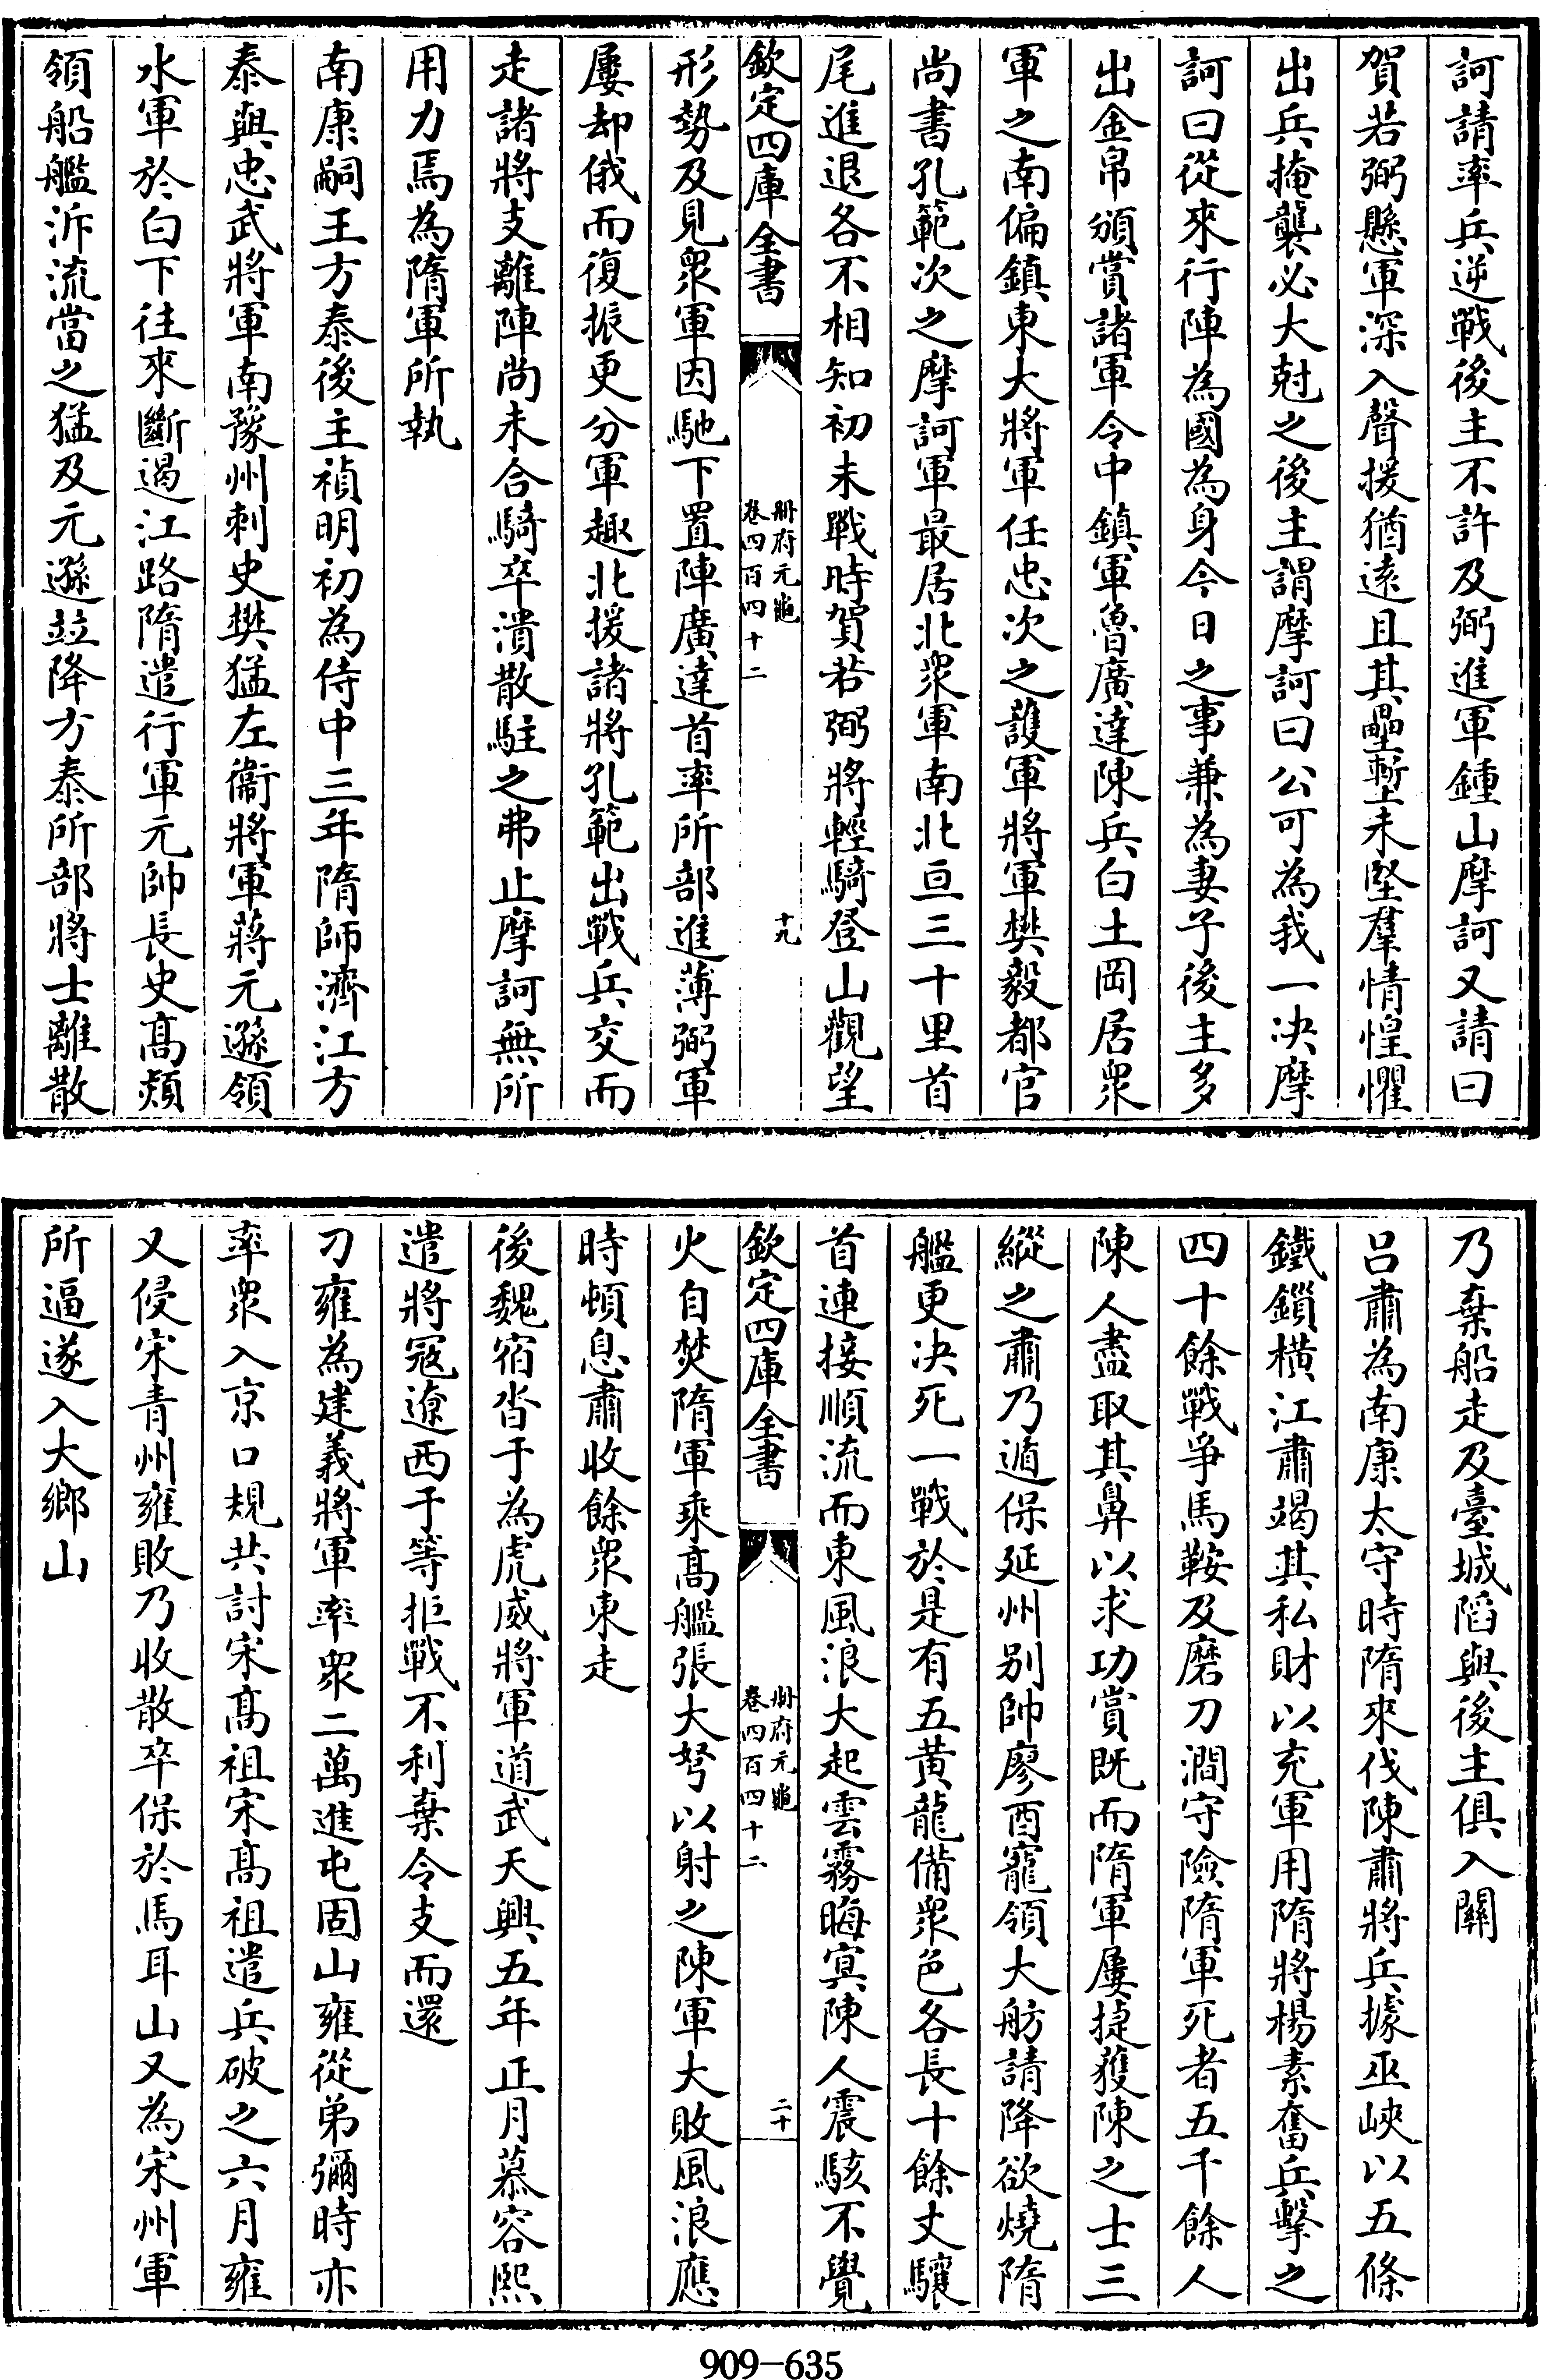 訶請率兵逆戰後主不許及弼進軍鍾山摩訶又請曰
賀若弼懸軍深入聲援猶遠且其壘塹未堅羣情惶懼
出兵掩襲必大尅之後主謂摩訶曰公可為我一决摩
訶曰從來行陣為國為身今日之事兼為妻子後主多
出金帛頒賞諸軍令中鎮軍魯廣達陳兵白土岡居衆
軍之南偏鎮東大將軍任忠次之護軍將軍樊毅都官
尚書孔範次之摩訶軍最居北衆軍南北亘三十里首
尾進退各不相知初未戰時賀若弼將輕騎登山觀望
欽定四庫全書
冊府元龜
卷四百四十二
十九
形勢及見衆軍因馳下置陣廣達首率所部進薄弼軍
屢却俄而復振更分軍趣北援諸將孔範出戰兵交而
走諸將支離陣尚未合騎卒潰散駐之弗止摩訶無所
用力焉為隋軍所執
南康嗣王方泰後主禎明初為侍中三年隋師濟江方
泰與忠武將軍南豫州刺史樊猛左衞將軍蔣元遜領
水軍於白下往來斷遏江路隋遣行軍元帥長史高熲
領船艦泝流當之猛及元遜並降方泰所部將士離散
乃棄船走及臺城陷與後主俱入關
吕肅為南康太守時隋來伐陳肅將兵據巫峽以五條
鐵鎖橫江肅竭其私財以充軍用隋將楊素奮兵擊之
四十餘戰爭馬鞍及磨刀澗守險隋軍死者五千餘人
陳人盡取其鼻以求功賞既而隋軍屢捷獲陳之士三
縱之肅乃遁保延州别帥廖酉寵領大舫請降欲燒隋
艦更决死一戰於是有五黄龍備衆色各長十餘丈驤
首連接順流而東風浪大起雲霧晦㝠陳人震駭不覺
欽定四庫全書
冊府元龜
卷四百四十二
二十
火自焚隋軍乘高艦張大弩以射之陳軍大敗風浪應
時頓息肅收餘衆東走
後魏宿沓于為虎威將軍道武天興五年正月慕容熙
遣將冦遼西于等拒戰不利棄令支而還
刁雍為建義將軍率衆二萬進屯固山雍從弟彌時亦
率衆入京口規共討宋高祖宋高祖遣兵破之六月雍
又侵宋青州雍敗乃收散卒保於馬耳山又為宋州軍
所逼遂入大鄉山
909-635